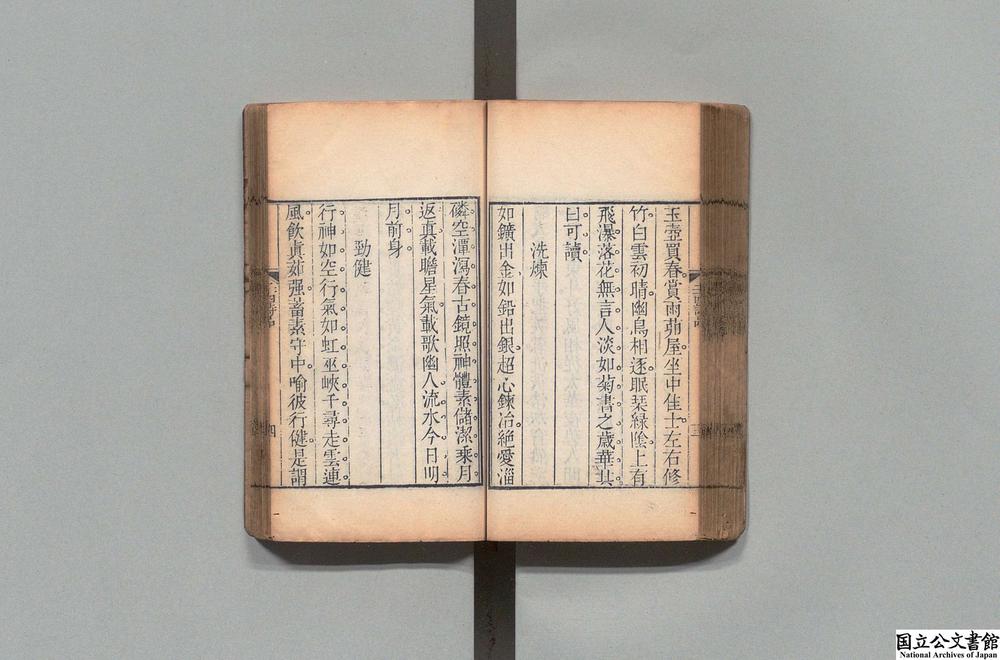 玉壺買春賞雨茆屋坐中佳士左右修
竹白雲初晴幽鳥相逐眠琹緑陰上有
飛瀑落花無言人淡如菊書之歳華其
曰可讀
洗煉
如鑛出金如鉛出銀超心鍊冶絶愛淄
磷空潭瀉春古鏡照神體素儲潔乘月
返真載瞻星氣載歌幽人流水今日明
月前身
勁健
行神如空行氣如虹巫峽千尋走雲連
風飲眞茹强蓄素守中喻彼行健是謂
四
国立公文書館
National Archives of Japan